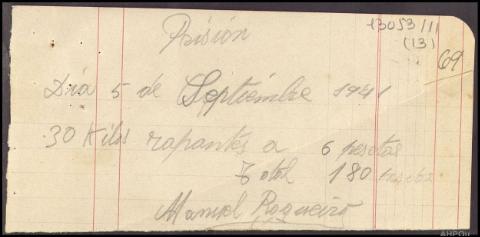 Prisión
13053/11
(13)
69
Dia 5 de Septiembre 1941
30 Kilos rapantes a 6 pesetas
Total 180 pesetas
Manuel Roqueiro
AHPOu